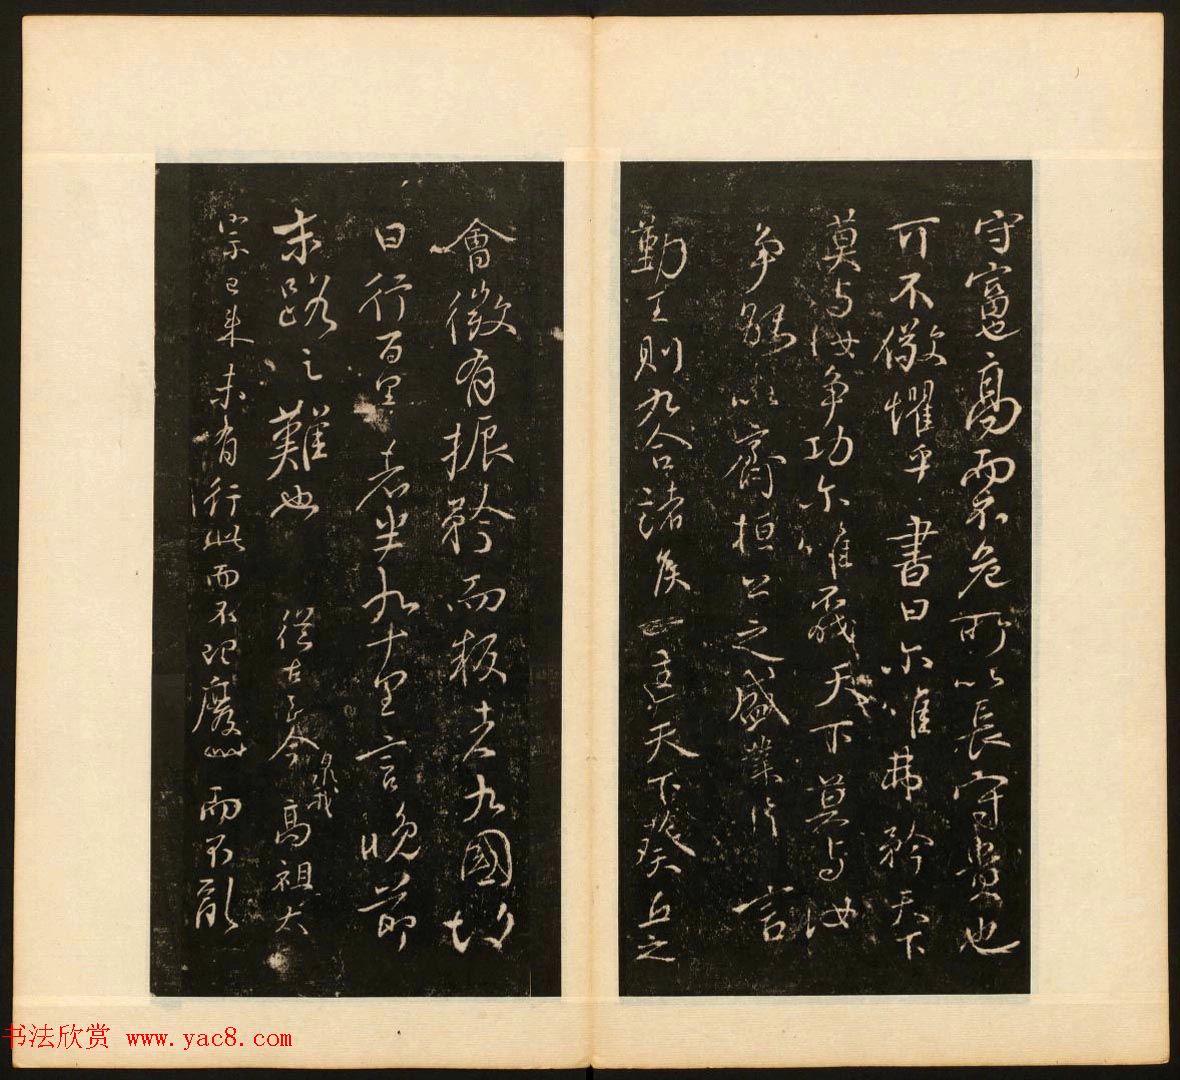 守富也高而不危所以長守貴也
可不儆懼乎書曰尔唯弗矜天下
莫与汝争功尔唯不伐天下莫与汝
争能以齊桓公之盛業片言
勤王則九合諸侯一匡天下葵丘之
會微有振矜而叛者九國故
曰行百里者半九十里言晚節
末路之難也從古至今臮我高祖太
宗已来未有行此而不理廢此而不亂
书法欣赏 www.yac8.com